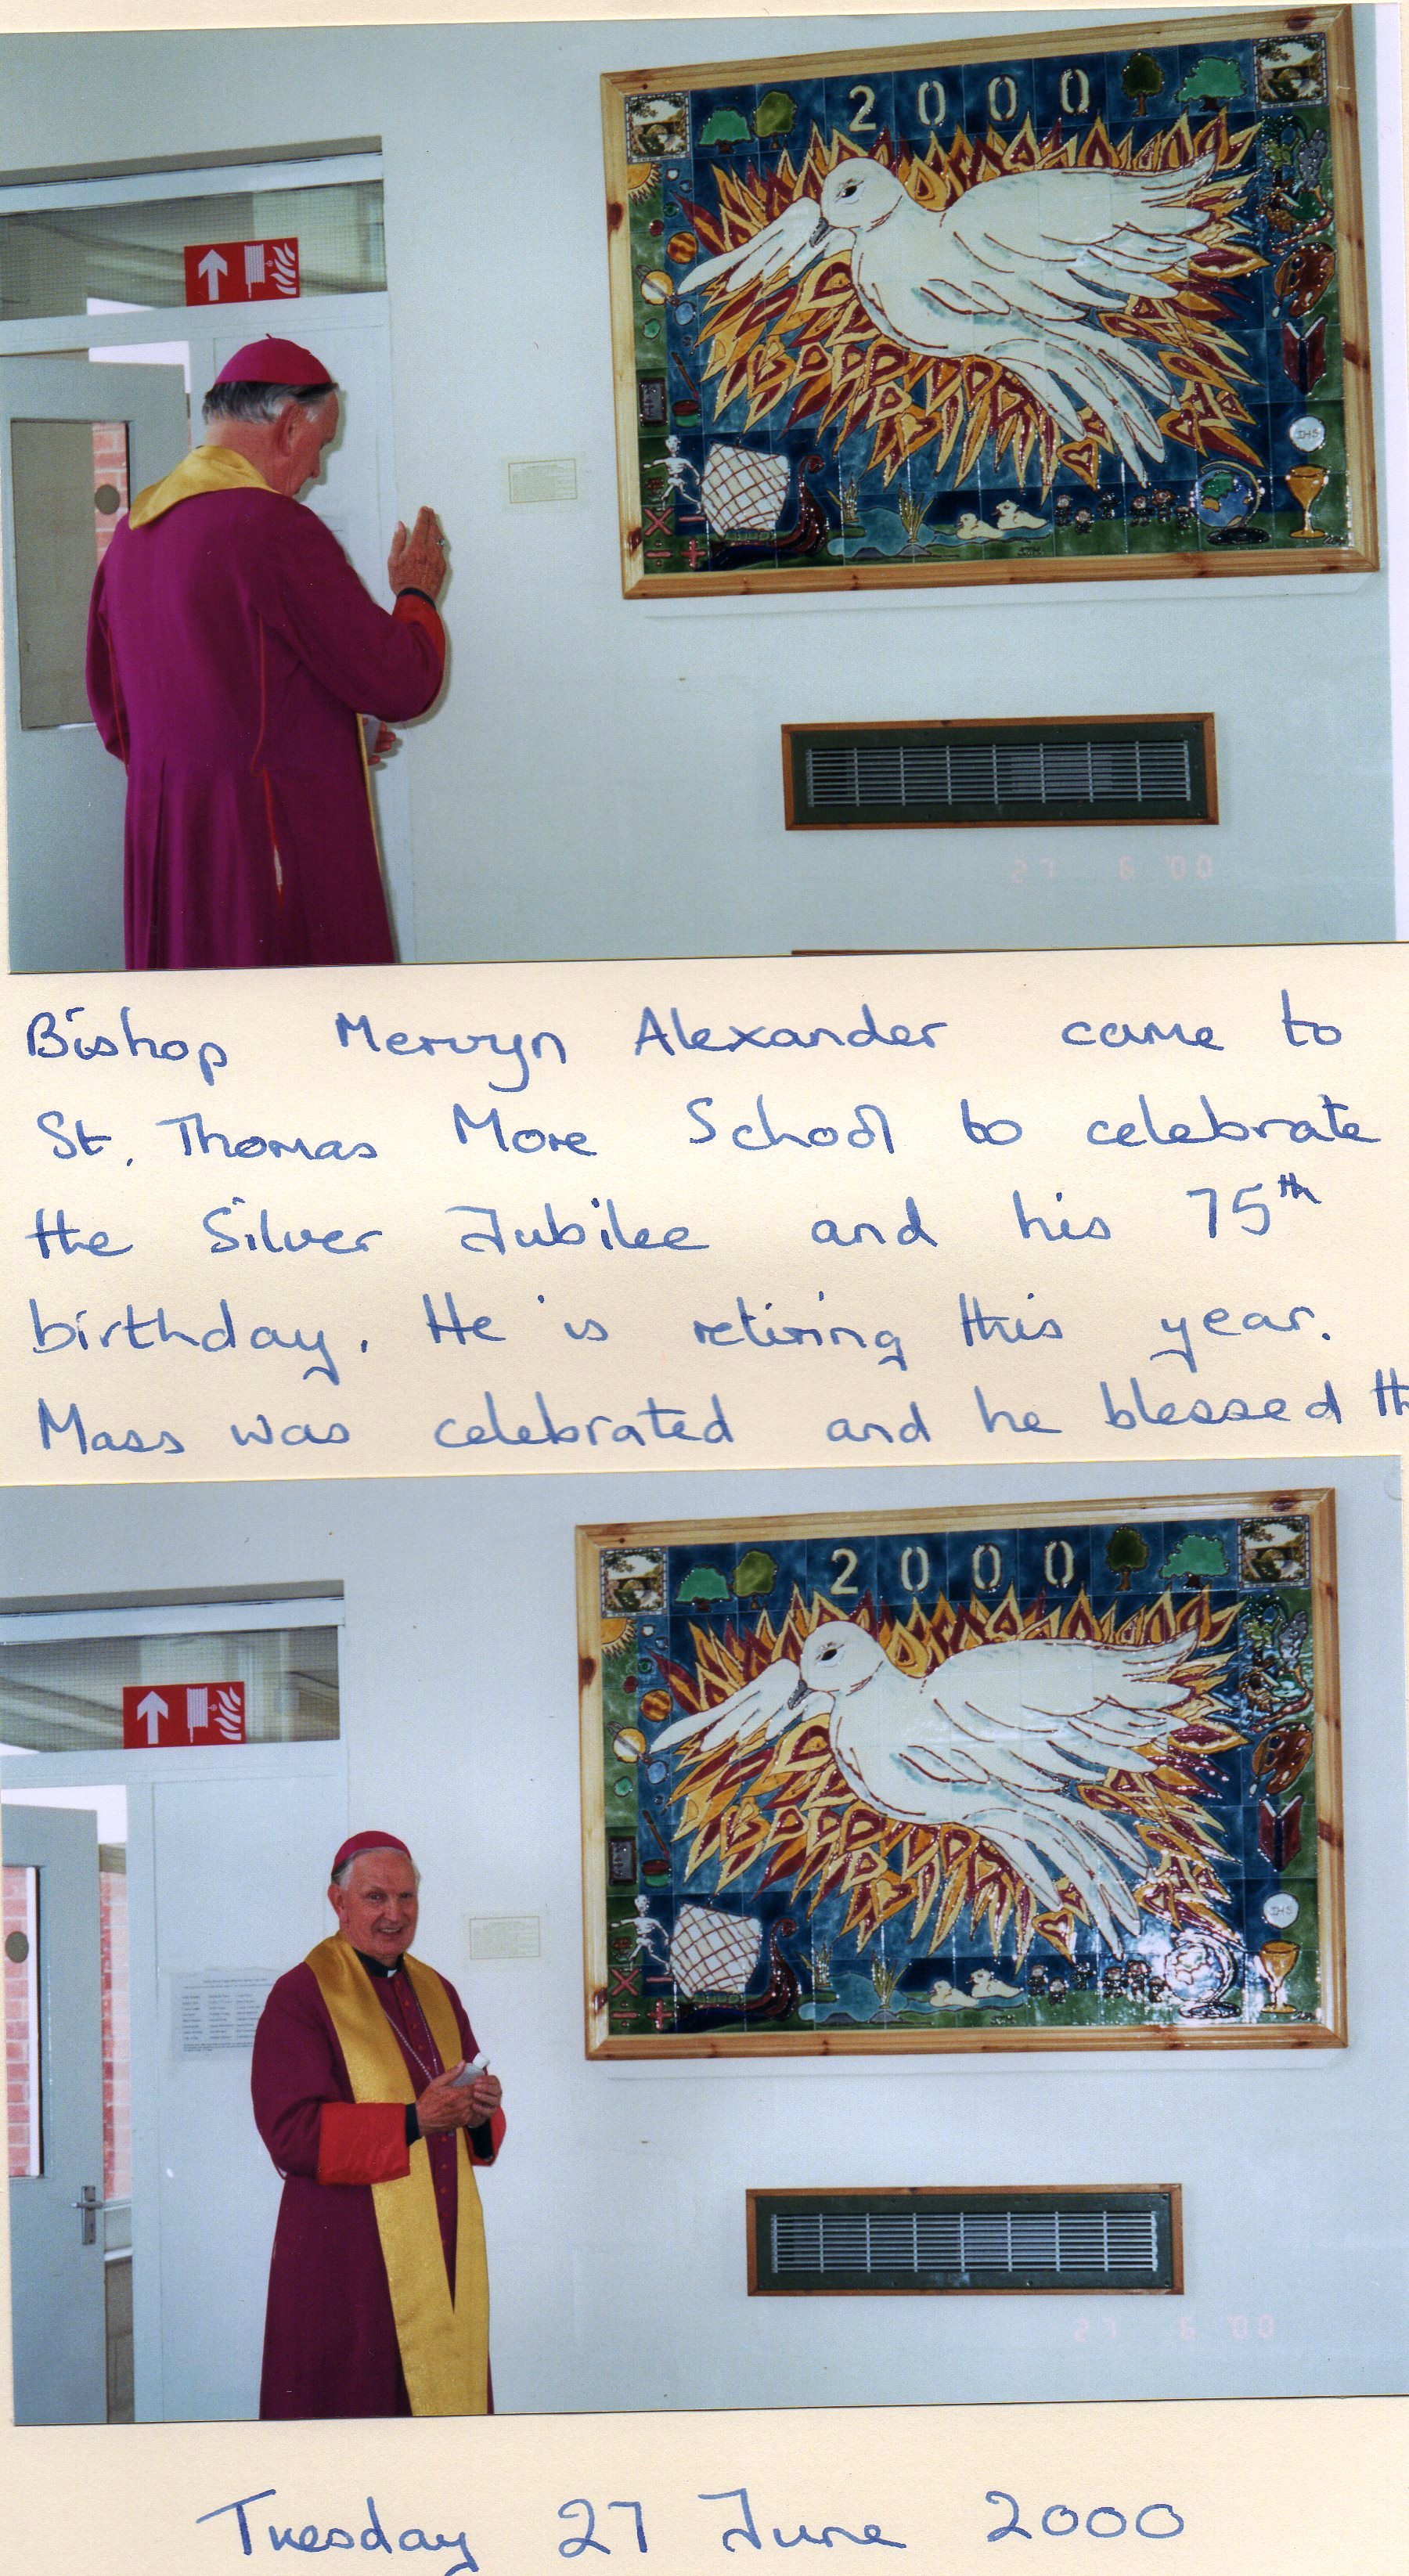 2000
IHS
27 6 '00
Bishop Mervyn Alexander came to
St. Thomas More School to celebrate
the Silver Jubilee and his 75th
birthday. He is retiring this year.
Mass was celebrated and he blessed th
2000
IHS
27 6 '00
Tuesday 27 June 2000